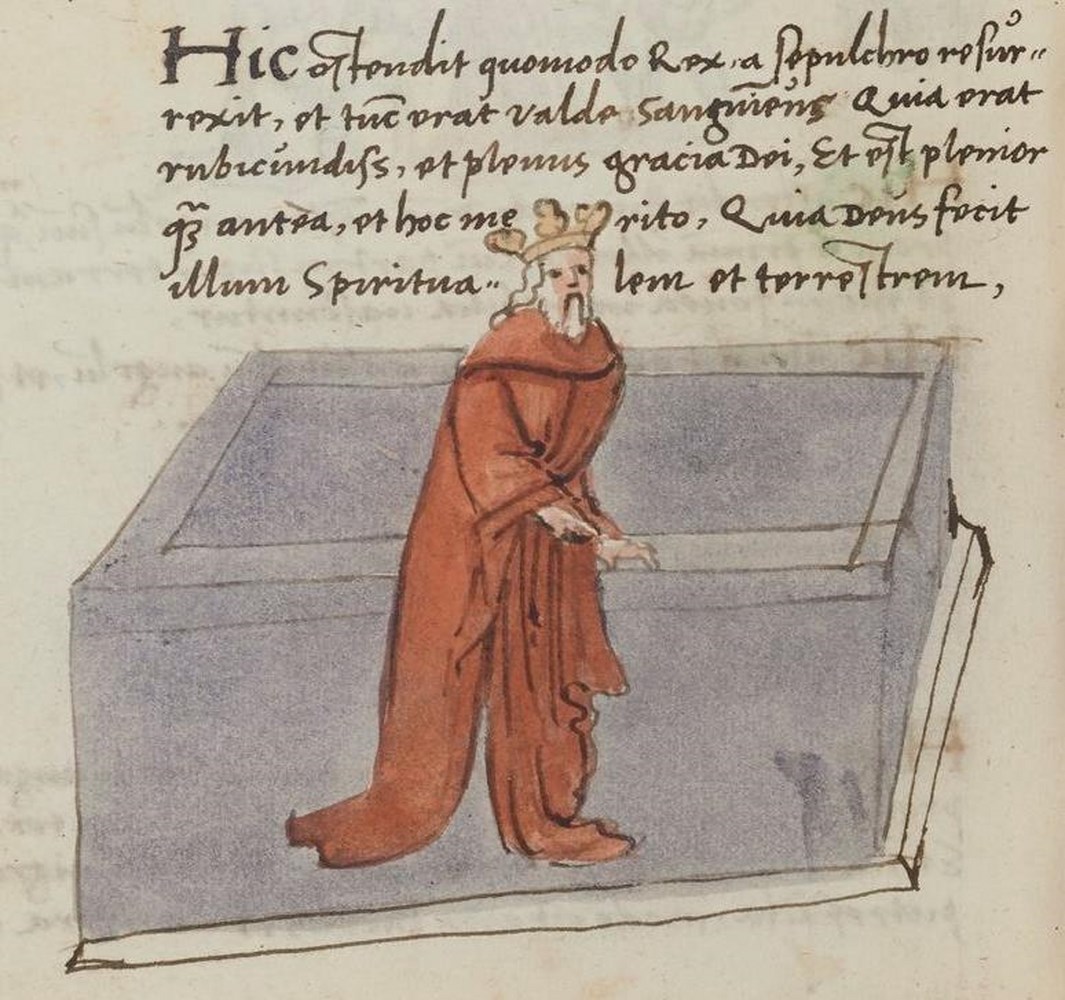 Hic ostendit quomodo Rex a sepulchro resur-
rexit, et tūc erat valde Sanguīeus Quia erat
rubicundiss, et plenus gracia Dei, Et est plenior
q̄ antea, et hoc me rito, Quia Deus fecit
illum Spiritua- lem et terrestrem,